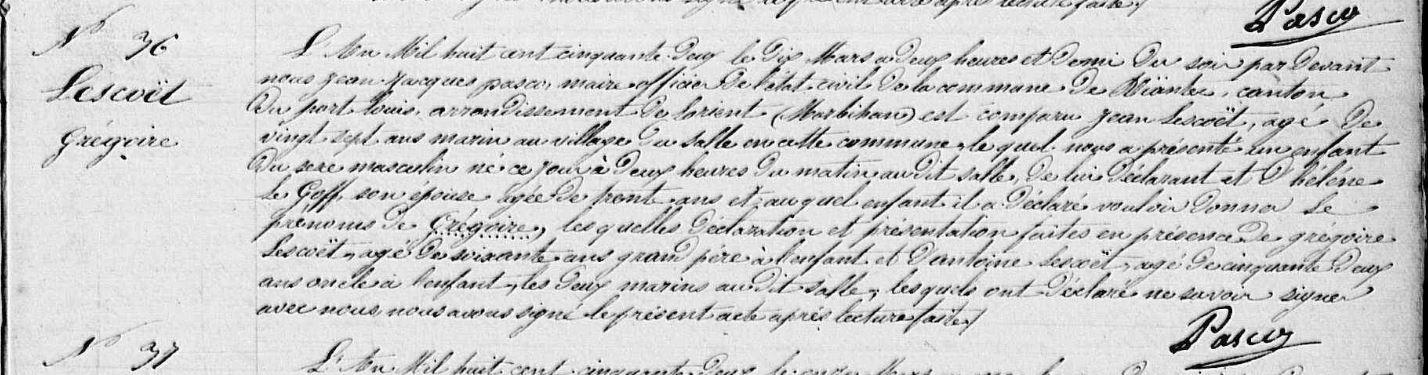 après lecture faite /
Pasco
N° 36
Lescoët
Grégoire
L'An Mil huit cent cinquante deux le dix Mars a deux heures et demi du soir par devant
nous jean jacques pasco, maire officier de l'état civil de la commune de Riantec, canton
du port louis, arrondissement de lorient (Morbihan) est comparu jean Lescoët, agé de
vingt sept ans marin au village du salle en cette commune, le quel nous a présenté un enfant
du sexe masculin né ce jour à deux heures du matin au dit salle, de lui déclarant et d'héléne
Le Goff son épouse agée de trente ans et auquel enfant il a déclaré vouloir donner le
prénoms de Grégoire, lesquelles déclaration et présentation faites en présence de grégoire
Lescoët, agé de soixante ans grand père à l'enfant et d'antoine Lescoët, agé de cinquante deux
ans oncle à l'enfant, les deux marins au dit salle, lesquels ont déclaré ne savoir signer
avec nous nous avons signé le présent acte après lecture faite /
Pasco
N° 37
L'An Mil huit cent cinquante deux le onze Mars